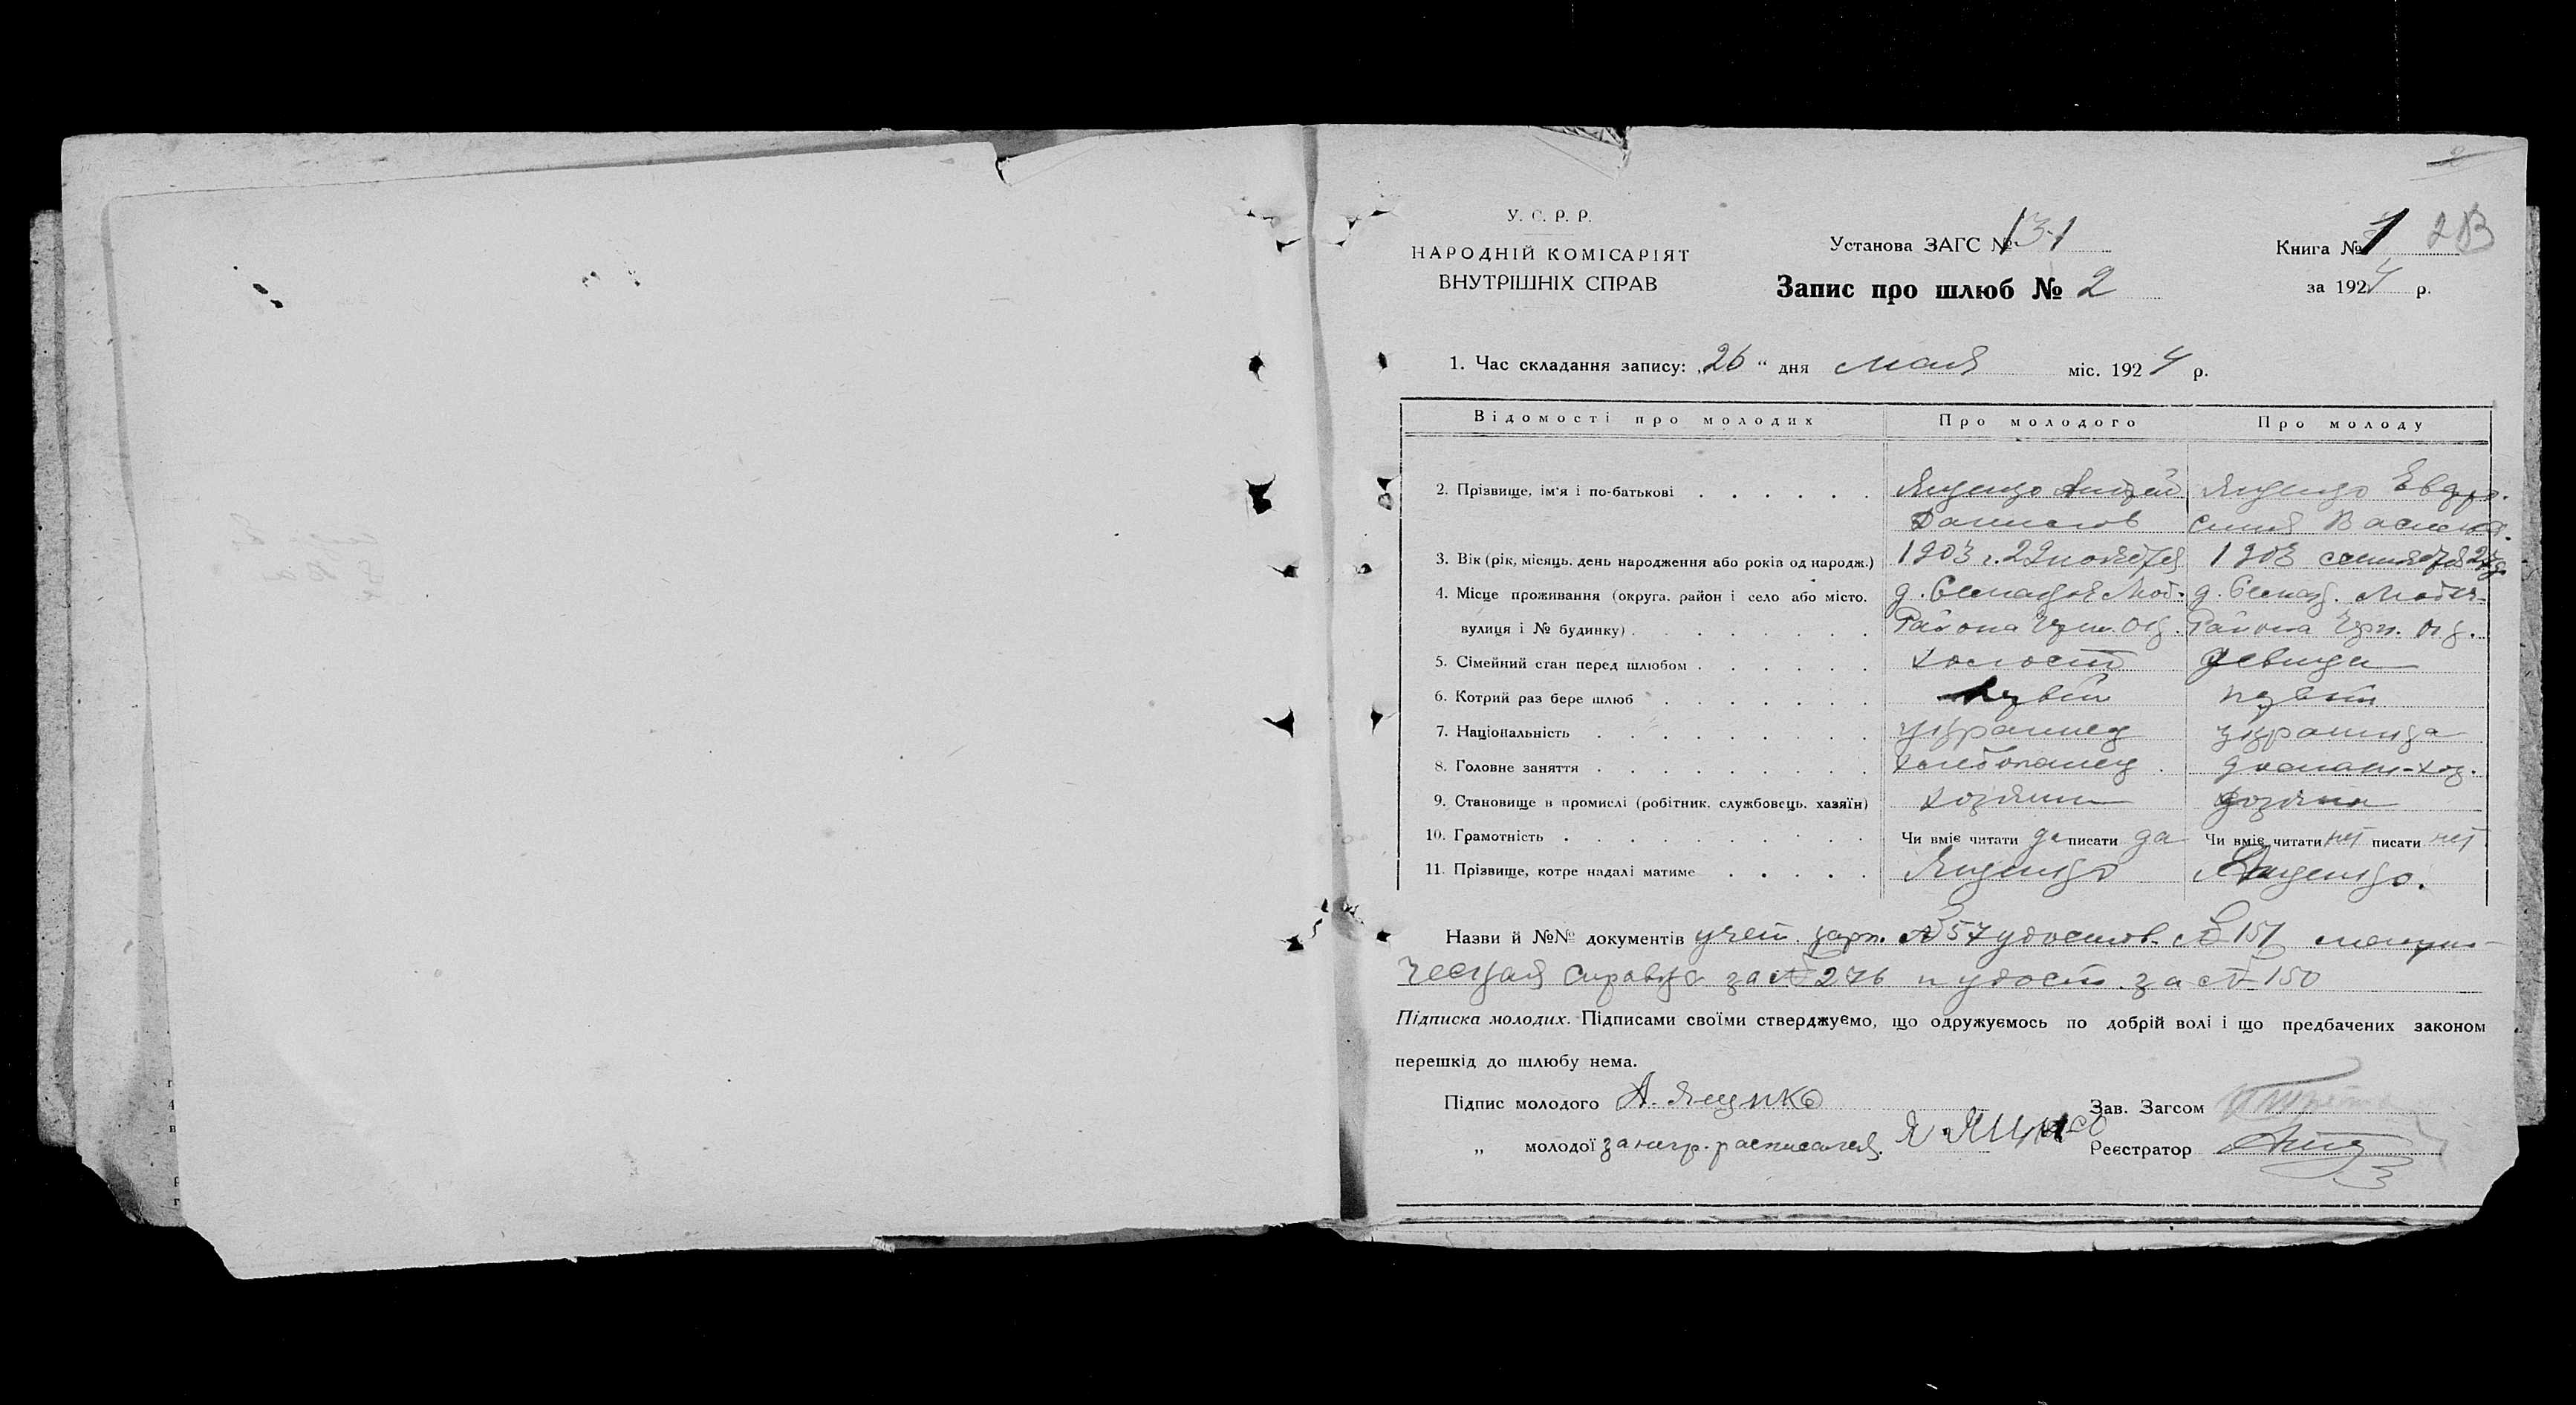 У. С. Р. Р.
НАРОДНІЙ КОМІСАРІЯТ
ВНУТРІШНІХ СПРАВ
Установа ЗАГС № 131
Запис про шлюб № 2
Книга № 1
за 1924 р.
1. Час складання запису: „26“ дня мая міс. 1924 р.
Відомості про молодих Про молодого Про молоду
2. Прізвище, ім'я і по-батькові Ященко Ященко Евдро-
синия Васил
3. Вік (рік, місяць, день народження або років од народж.) 1903 г. 29 ноября 1903 сентября
4. Місце проживання (округа, район і село або місто, д. д.
вулиця і № будинку) Района Окр. Района Окр.
5. Сімейний стан перед шлюбом холост девица
6. Котрий раз бере шлюб первый первый
7. Національність украинец украинка
8. Головне заняття хлебопашец домашн. хоз.
9. Становище в промислі (робітник, службовець, хазяїн) хозяин
10. Грамотність Чи вміє читати да писати да Чи вміє читати нет писати нет
11. Прізвище, котре надалі матиме Ященко Ященко.
Назви й №№ документів учет. карт. № 57 удостов. № 151
ческая справка за № 276 и удост. за № 150
Підписка молодих. Підписами своїми стверджуємо, що одружуємось по добрій волі і що предбачених законом
перешкід до шлюбу нема.
Підпис молодого А. Ященко
„ молодої за негр. расписался
Зав. Загсом
Реєстратор